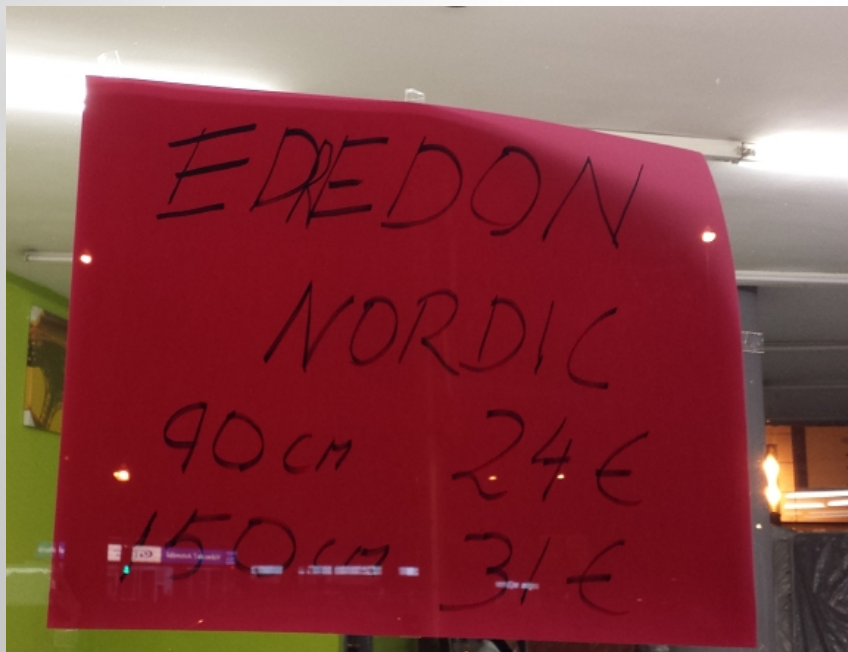 EDREDON
NORDIC
90 CM 24 €
150 CM 31 €